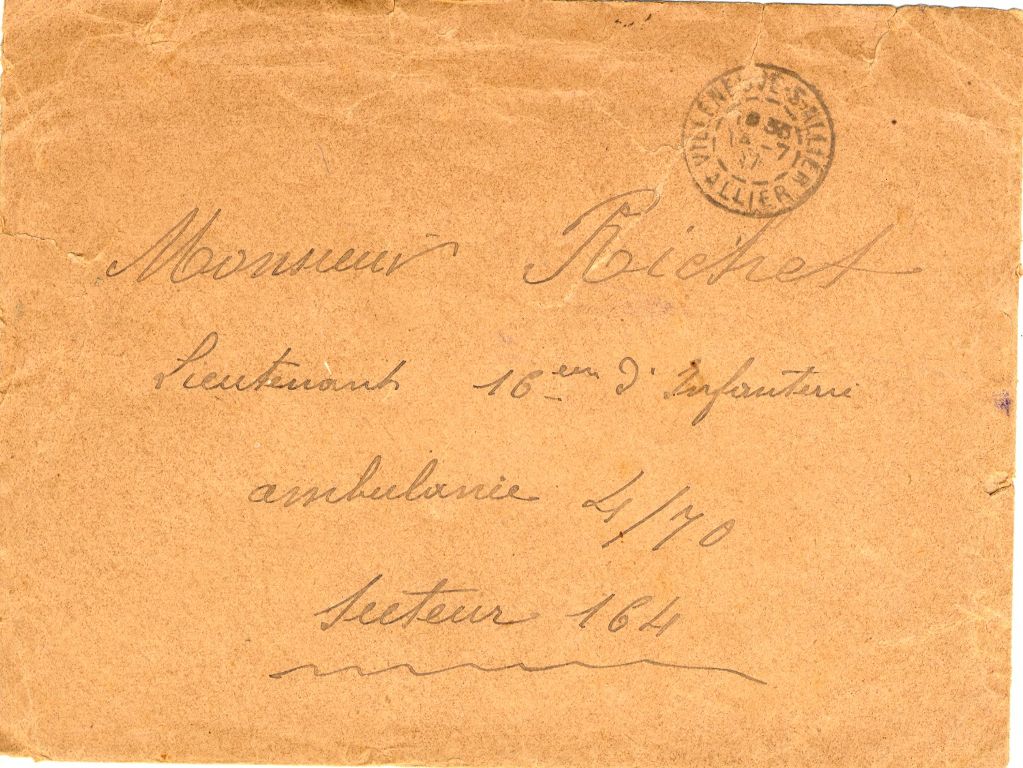 VILLENEUVE-S-ALLIER
ALLIER
Monsieur Richet
Lieutenant 16eme d'Infanterie
ambulance 4/70
Secteur 164